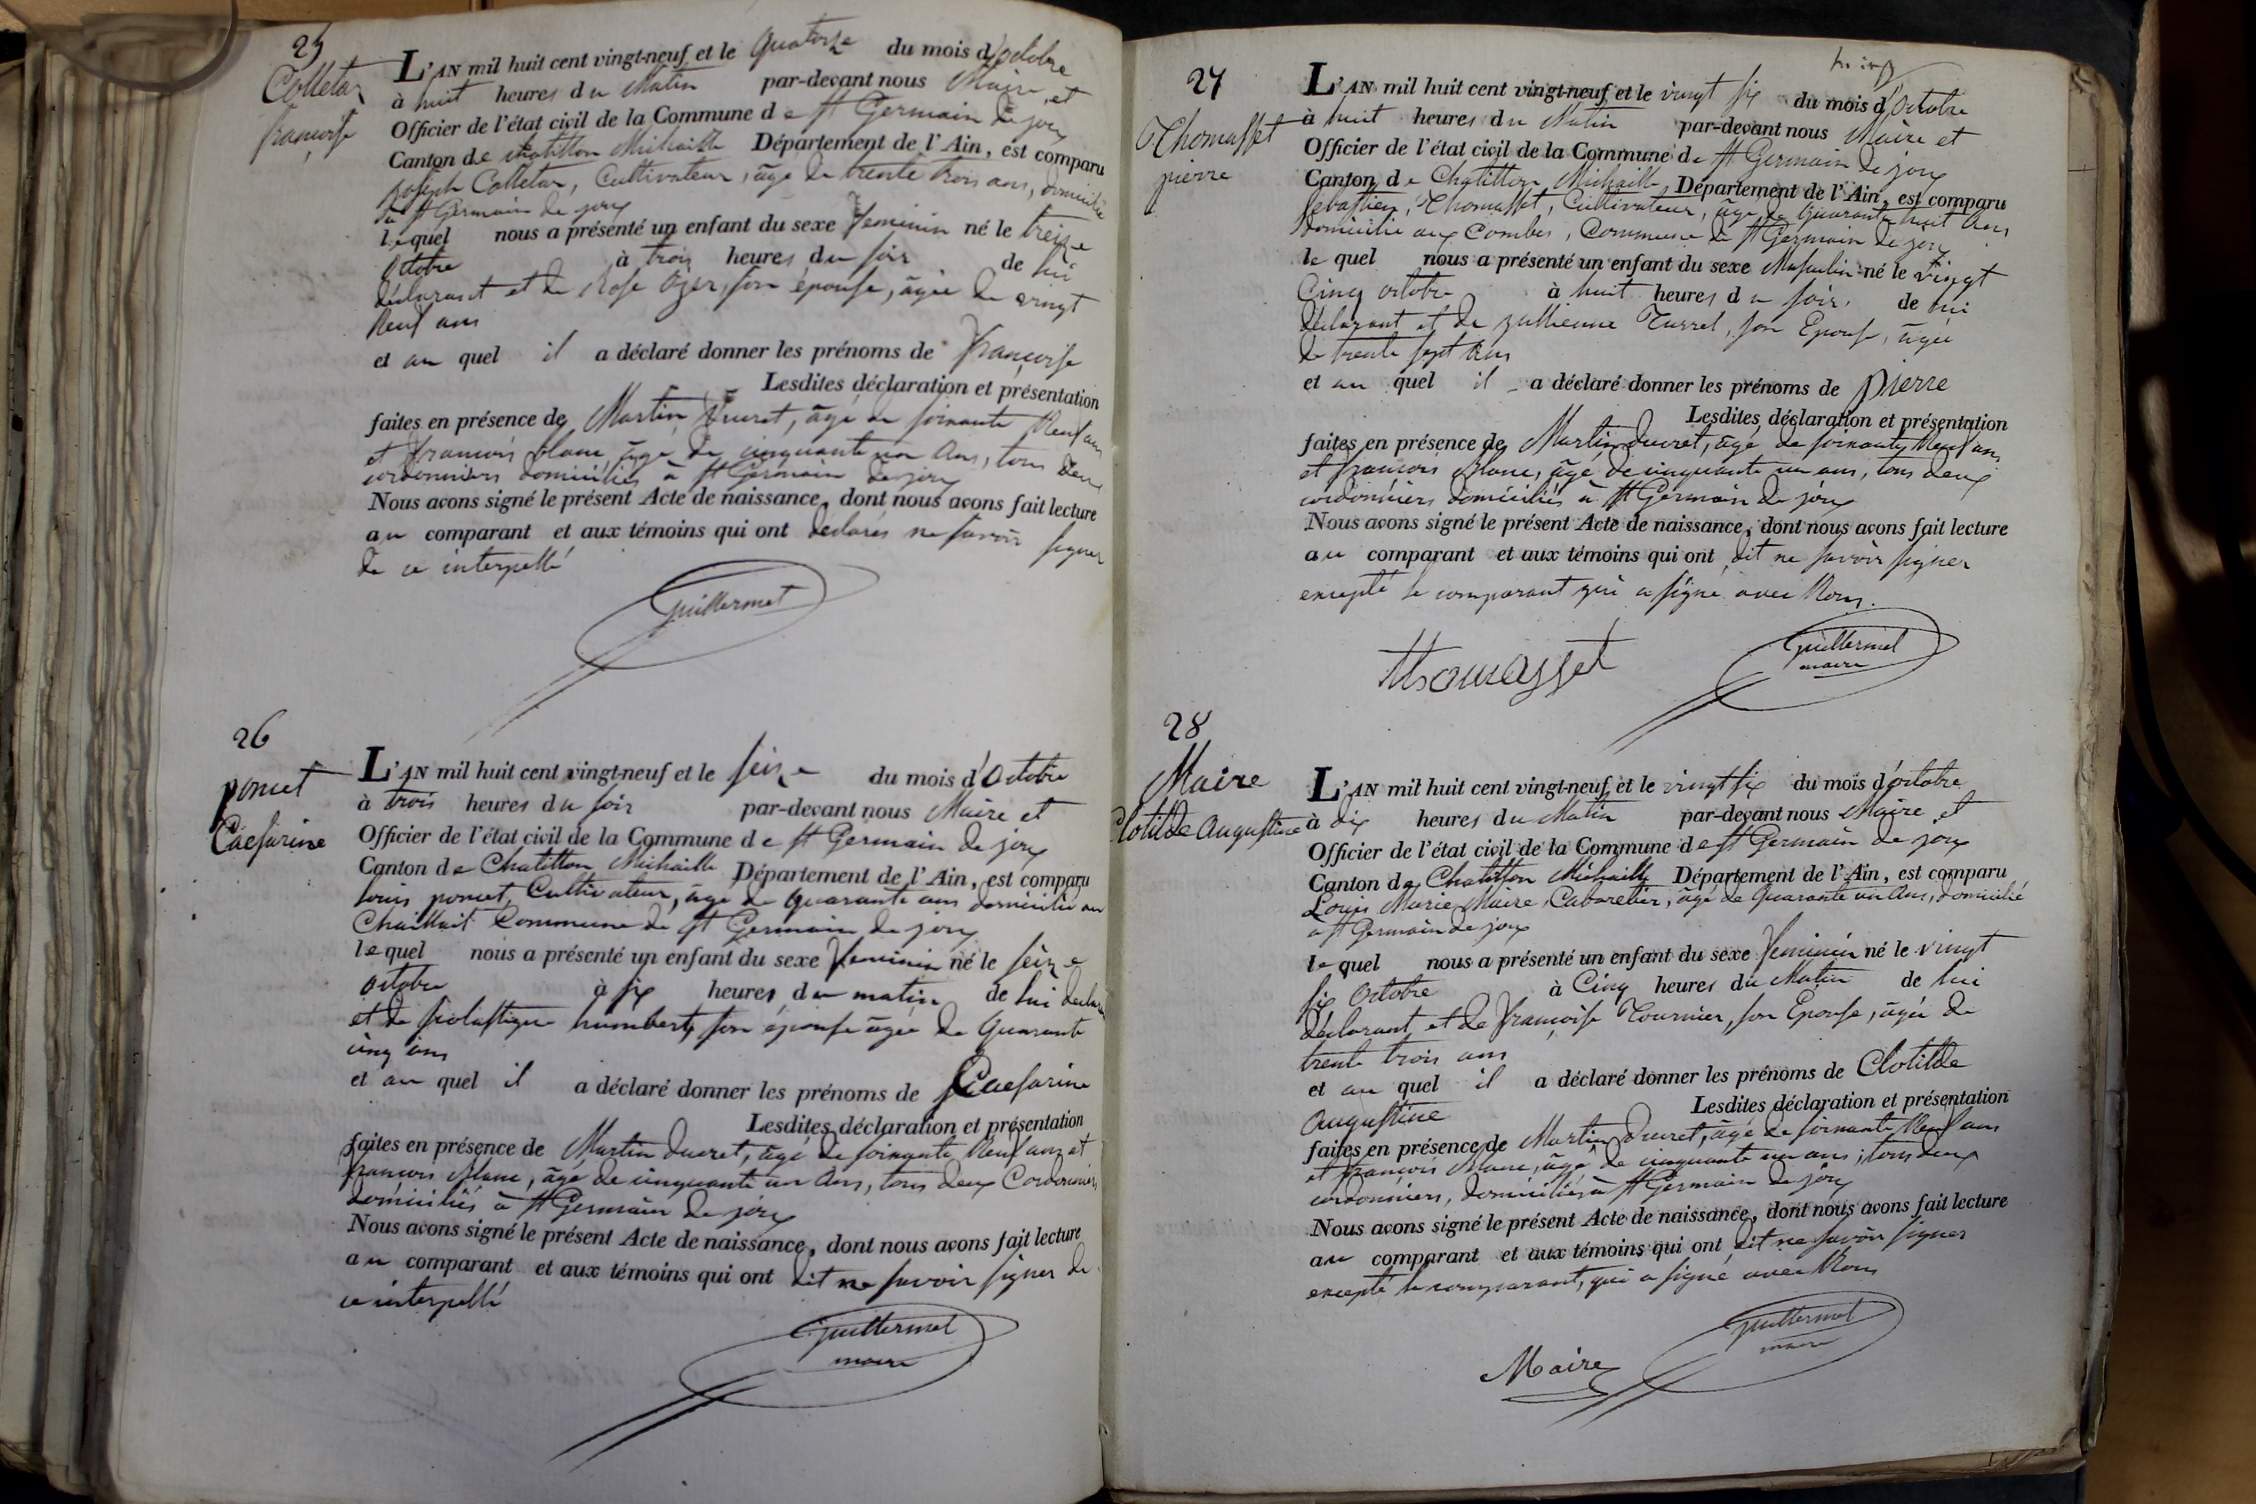 25
Colletaz
françoise
L'AN mil huit cent vingt-neuf et le quatorze du mois d'octobre
à huit heures du Matin par-devant nous Maire et
Officier de l'état civil de la Commune de St Germain de joux
Canton de chatillon Michaille Département de l'Ain, est comparu
joseph Colletaz, Cultivateur, âgé de trente trois ans, domicilié
à St Germain de joux
lequel nous a présenté un enfant du sexe feminin né le treize
octobre à trois heures du soir de lui
déclarant et de Rose Ozer, son épouse, âgée de vingt
Neuf ans
et au quel il a déclaré donner les prénoms de françoise
Lesdites déclaration et présentation
faites en présence de Martin Ducret, âgé de soixante Neuf ans
et françois blanc, âgé de cinquante un Ans, tous deux
cordonniers domiciliés à St Germain de joux
Nous avons signé le présent Acte de naissance, dont nous avons fait lecture
au comparant et aux témoins qui ont declarés ne savoir signer
de ce interpellé
Guillermet
26
poncet
Caesarine
L'AN mil huit cent vingt-neuf et le seize du mois d'Octobre
à trois heures du soir par-devant nous Maire et
Officier de l'état civil de la Commune de St Germain de joux
Canton de Chatillon Michaille Département de l'Ain, est comparu
louis poncet, Cultivateur, âgé de quarante ans domicilié au
Chaillait Commune de St Germain de joux
lequel nous a présenté un enfant du sexe feminin né le seize
octobre à six heures du matin de lui declarant
et de scolastique humbert, son épouse âgée de quarante
cinq ans
et au quel il a déclaré donner les prénoms de Caesarine
Lesdites déclaration et présentation
faites en présence de Martin Ducret, âgé de soixante Neuf ans et
françois Blanc, âgé de cinquante un Ans, tous deux Cordonniers
domiciliés à St Germain de joux
Nous avons signé le présent Acte de naissance, dont nous avons fait lecture
au comparant et aux témoins qui ont dit ne savoir signer de
ce interpellé
Guillermet
maire
27
Thomasset
pierre
L'AN mil huit cent vingt-neuf et le vingt six du mois d'Octobre
à huit heures du Matin par-devant nous Maire et
Officier de l'état civil de la Commune de St Germain de joux
Canton de Chatillon Michaille Département de l'Ain, est comparu
Sebastien, Thomasset, Cultivateur, âgé de Quarante huit Ans
domicilié aux Combes, Commune de St Germain de joux
lequel nous a présenté un enfant du sexe Masculin né le vingt
Cinq octobre à huit heures du soir de lui
déclarant et de jullienne Turrel, son Epouse, âgée
de trente sept Ans
et au quel il a déclaré donner les prénoms de pierre
Lesdites déclaration et présentation
faites en présence de Martin Ducret, âgé de soixante Neuf ans
et françois Blanc, âgé de cinquante un ans, tous deux
cordonniers domiciliés à St Germain de joux
Nous avons signé le présent Acte de naissance, dont nous avons fait lecture
au comparant et aux témoins qui ont dit ne savoir signer
excepté le comparant qui a signé avec Nous.
Thomasset
Guillermet
maire
28
Maire
Clotilde Augustine
L'AN mil huit cent vingt-neuf et le vingt six du mois d'octobre
à dix heures du Matin par-devant nous Maire et
Officier de l'état civil de la Commune de St Germain de joux
Canton de Chatillon Michaille Département de l'Ain, est comparu
Louis Marie Maire, Cabaretier, âgé de Quarante un Ans, domicilié
à St Germain de joux
lequel nous a présenté un enfant du sexe feminin né le vingt
six Octobre à Cinq heures du Matin de lui
déclarant et de françoise Tournier, son Epouse, âgée de
trente trois ans
et au quel il a déclaré donner les prénoms de Clotilde
Augustine Lesdites déclaration et présentation
faites en présence de Martin Ducret, âgé de soixante Neuf ans
et françois Blanc, âgé de cinquante un ans, tous deux
cordonniers, domiciliés à St Germain de joux
Nous avons signé le présent Acte de naissance, dont nous avons fait lecture
au comparant et aux témoins qui ont dit ne savoir signer
excepté le comparant, qui a signé avec Nous
Maire
Guillermet
maire